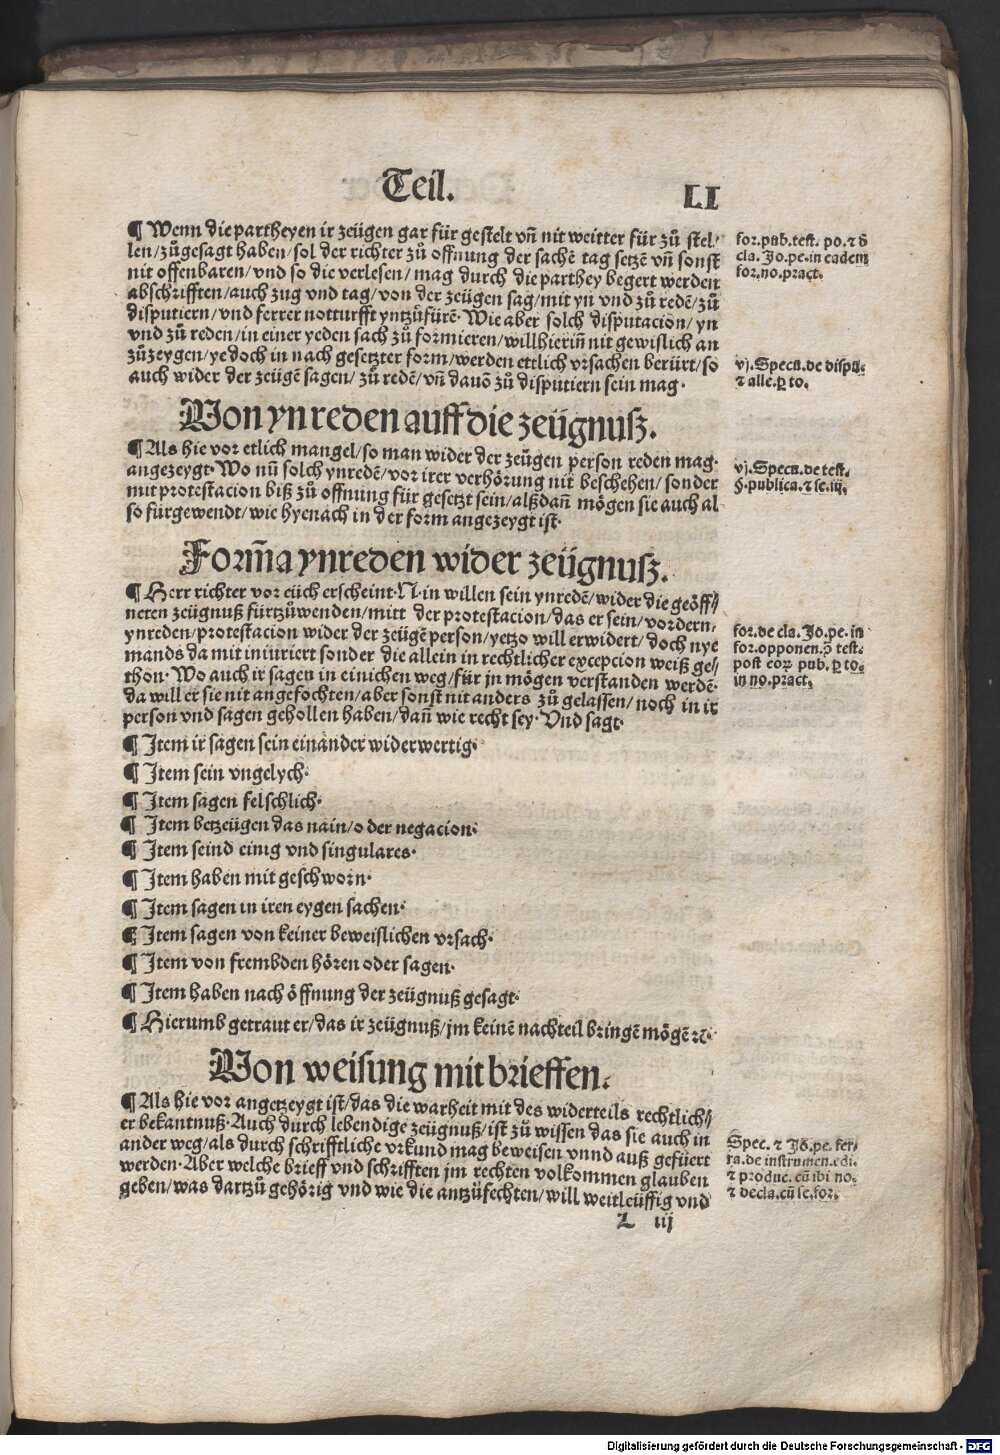 Teil.
LI
¶ Wenn die partheyen ir zeügen gar für gestelt vñ nit weitter für zů stel⸗
len/zůgesagt haben/sol der richter zů offnung der sachẽ tag setzẽ vñ sonst
nit offenbaren/vnd so die verlesen/mag durch die parthey begert werden
abschrifften/auch zug vnd tag/von der zeügen sag/mit yn vnd zů redẽ/zů
disputiern/vnd ferrer notturfft yntzůfürẽ. Wie aber solch disputacion/yn
vnd zů reden/in einer yeden sach zů formieren/will hieriñ nit gewislich an
zůzeygen/yedoch in nach gesetzter form/werden ettlich vrsachen berürt/so
auch wider der zeügẽ sagen/zů redẽ/vñ dauõ zů disputiern sein mag.
for.pub.test. po.⁊ õ
cla. Jo.pe.in eadem
for.no.pract.
vj. Specu.de dispu.
⁊ alle.ꝑ to.
Von ynreden auff die zeügnusz.
¶ Als hie vor etlich mangel/so man wider der zeügen person reden mag.
angezeygt. Wo nũ solch ynredẽ/vor irer verhörung nit beschehen/sonder
mit protestacion biß zů offnung für gesetzt sein/alßdañ mögen sie auch al
so fürgewendt/wie hyenach in der form angezeygt ist.
vj. Specu.de test.
§.publica.⁊ se.iij.
Form̃a ynreden wider zeügnusz.
¶ Herr richter vor eüch erscheint. N. in willen sein ynredẽ/wider die geöff⸗
neten zeügnuß fürtzůwenden/mitt der protestacion/das er sein/vordern⸗
ynreden/protestacion wider der zeügẽ person/yetzo will erwidert/doch nye
mands da mit iniuriert sonder die allein in rechtlicher excepcion weiß ge⸗
thon. Wo auch ir sagen in einichen weg/für jn mögen verstanden werdẽ.
da will er sie nit angefochten/aber sonst nit anders zů gelassen/noch in ir
person vnd sagen gehollen haben/dañ wie recht sey. Vnd sagt.
for.de cla. Jo.pe. in
for.opponen.ↄ̃ test.
post eoꝝ pub.ꝑ to.
in no.pract.
¶ Item ir sagen sein einander widerwertig.
¶ Item sein vngelych.
¶ Item sagen felschlich.
¶ Item betzeügen das nain/oder negacion.
¶ Item seind einig vnd singulares.
¶ Item haben mit geschworn.
¶ Item sagen in iren eygen sachen.
¶ Item sagen von keiner beweislichen vrsach.
¶ Item von frembden hören oder sagen.
¶ Item haben nach öffnung der zeügnuß gesagt.
¶ Hierumb getraut er/das ir zeügnuß/jm keinẽ nachteil bringẽ mögẽ ⁊c̃.
Von weisung mit brieffen.
¶ Als hie vor angetzeygt ist/das die warheit mit des widerteils rechtlich⸗
er bekantnuß. Auch durch lebendige zeügnuß/ist zů wissen das sie auch in
ander weg/als durch schrifftliche vrkund mag beweisen vnnd auß gefüert
werden. Aber welche brieff vnd schrifften jm rechten volkommen glauben
geben/was dartzů gehörig vnd wie die antzůfechten/will weitleüffig vnd
Spec. ⁊ Jõ.pe. fer⸗
ra.de instrumen.edi.
⁊ produc. cũ ibi no.
⁊ decla.cũ se.for.
L iij
Digitalisierung gefördert durch die Deutsche Forschungsgemeinschaft - DFG